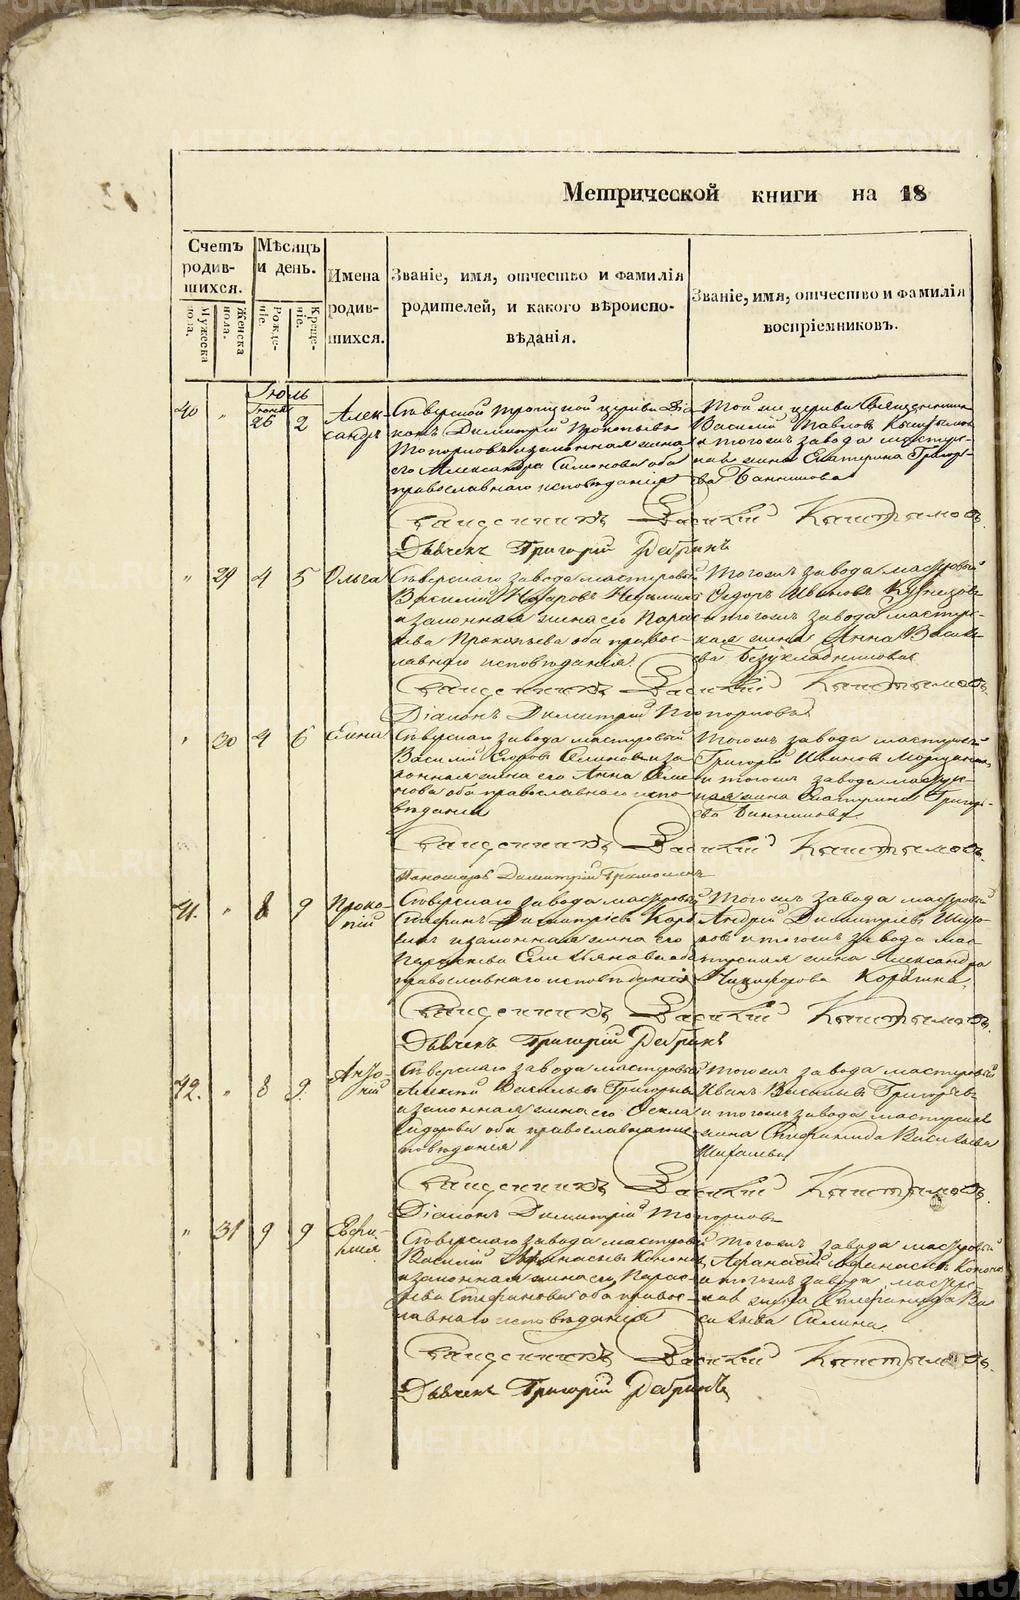 METRIKI.GASO-URAL.RU
Метрической книги на 18
Счетъ родившихся.
Мужеска пола.
Женска пола.
Мѣсяцъ и день.
Рожденіе.
Крещеніе.
Имена родившихся.
Званіе, имя, отчество и фамилія
родителей, и какого вѣроиспо-
вѣданія.
Званіе, имя, отчество и фамилія
воспріемниковъ.
Іюль
40 " Іюня 26 2 Алек-
сандръ
Сѣверской Троицкой церкви Діа
конъ Димитрій Прокопьевъ
Топорковъ и законная жена
его Александра Симонова оба
православнаго исповѣданія
Той же церкви Священникъ
Василій Павловъ Кыштымовъ
и тогожъ завода мастерс-
кая жена Екатерина Григорь-
ева Банникова
Священникъ Василій Кыштымовъ.
Дьячекъ Григорій Ребринъ
" 29 4 5 Ольга
Сѣверскаго завода мастеровой
Василій Назаровъ
и законная жена его Парас-
кева Прокопьева оба правос-
лавнаго исповѣданія.
Тогожъ завода мастеровой
Ѳедоръ Ивановъ Кузнецовъ
и тогожъ завода мастерс-
кая жена Анна Василь-
ева Безукладникова
Священникъ Василій Кыштымовъ.
Діаконъ Димитрій Топорковъ
" 30 4 6 Елена
Сѣверскаго завода мастеровой
Василій Егоровъ и за-
конная жена его Анна Семе-
нова оба православнаго испо-
вѣданія
Тогожъ завода мастеровой
Григорій Ивановъ
и тогожъ завода мастерс-
кая жена Екатерина Григорь-
ева Банникова
Священникъ Василій Кыштымовъ.
Пономарь Димитрій
41. " 8 9 Проко-
пій
Сѣверскаго завода мастеровой
Димитріевъ
и законная жена его
Параскева Емельянова оба
православнаго исповѣданія
Тогожъ завода мастеровой
Андрей Димитріевъ
и тогожъ завода мас-
терская жена Александра
Никифорова Корякина
Священникъ Василій Кыштымовъ.
Дьячекъ Григорій Ребринъ
42. " 8 9. Анто-
ній
Сѣверскаго завода мастеровой
Алексѣй Васильевъ Григорьевъ
и законная жена его Ѳекла
Сидорова оба православнаго ис-
повѣданія
Тогожъ завода мастеровой
Иванъ Васильевъ Григорьевъ
и тогожъ завода мастерская
жена Стефанида Васильева
Священникъ Василій Кыштымовъ.
Діаконъ Димитрій Топорковъ
" 31 9 9 Евфи-
мія
Сѣверскаго завода мастеровой
Василій Афанасьевъ Кононовъ
и законная жена его Парас-
кева Стефанова оба правос-
лавнаго исповѣданія
Тогожъ завода мастеровой
Афанасій Афанасьевъ Кононовъ
и тогожъ завода мастерс-
кая жена Стефанида Ва-
сильева
Священникъ Василій Кыштымовъ.
Дьячекъ Григорій Ребринъ